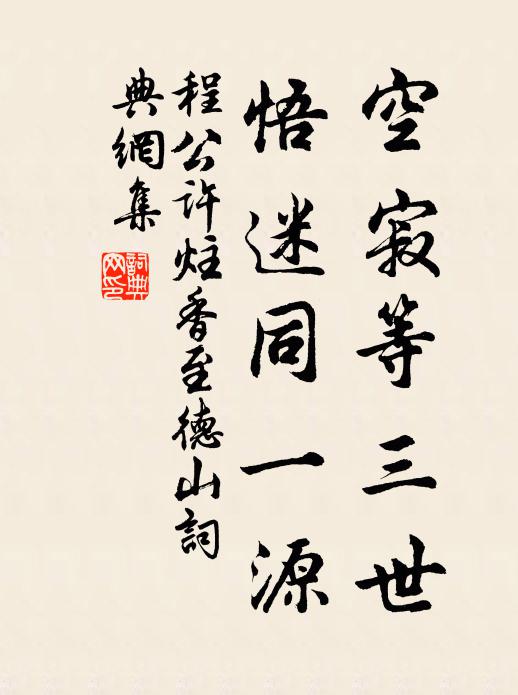 空寂等三世
悟迷同一源
程公许炷香至德山詞
典網集
詞典
网印